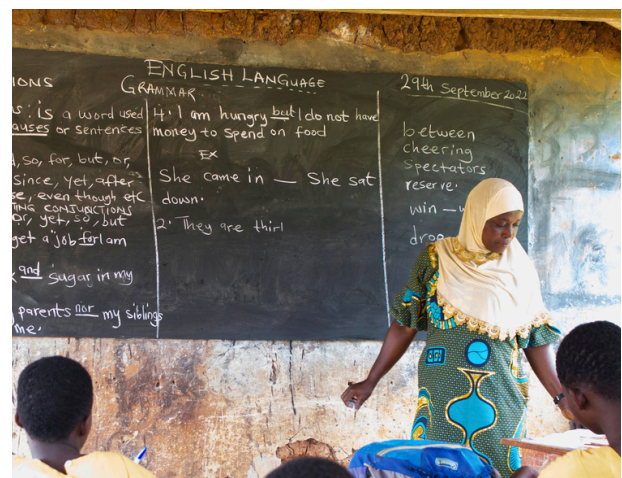 ENGLISH LANGUAGE
GRAMMAR
IONS
is a word used
auses or sentences
so, for, but, or,
Since, yet, after
se, even though etc
TING CONJUNCTIONS
or, yet, so, but
get a job for I am
and sugar in my
parents nor my siblings
me.
4. I am hungry but I do not have
money to spend on food
EX
She came in __ She sat
down.
2. They are thirl
29th September
between
cheering
spectators
reserve.
win —
drop